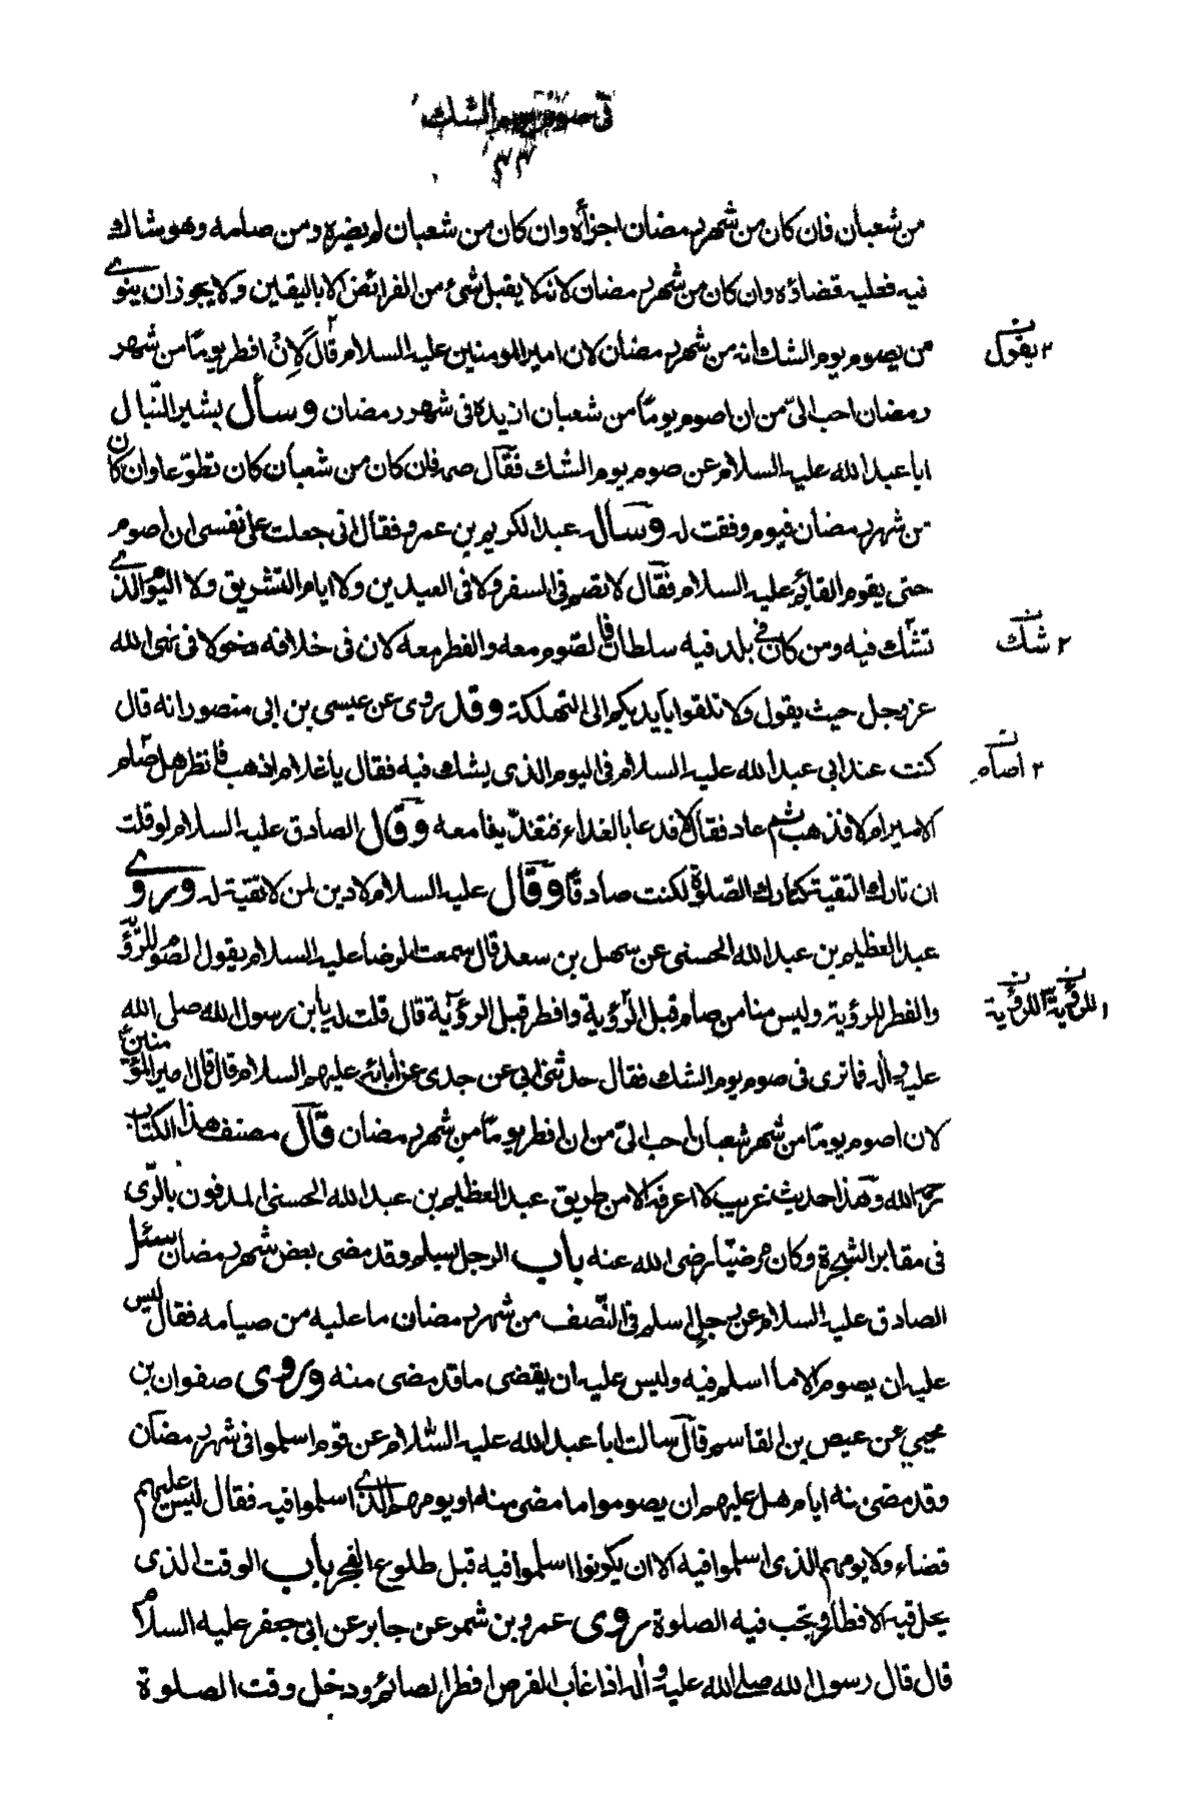 في صوم يوم الشك
٣٣
من شعبان فان كان من شهر رمضان اجزأه وان كان من شعبان لم يضره ومن صامه وهو شاك
فيه فعليه قضاؤه وان كان من شهر رمضان لانه لا يقبل شئ من الفرائض الا باليقين ولا يجوز ان ينوي
من يصوم يوم الشك انه من شهر رمضان لان امير المومنين عليه السلام قال لان افطر يوما من شهر
٢ يقول
رمضان احب الىّ من ان اصوم يوما من شعبان ازيده فى شهر رمضان وسأل بشير النبّال
ابا عبد الله عليه السلام عن صوم يوم الشك فقال صمه فان كان من شعبان كان تطوّعا وان كان
من شهر رمضان فيوم وفقت له وسأله عبد الكريم بن عمرو فقال انى جعلت على نفسى ان اصوم
حتى يقوم القائم عليه السلام فقال لا تصم في السفر ولا في العيدين ولا ايام التشريق ولا اليوم الذي
تشك فيه ومن كان في بلد فيه سلطان فالصوم معه والفطر معه لان فى خلافه دخولا فى نهى الله
٢ شك
عز وجل حيث يقول ولا تلقوا بأيديكم الى التهلكة وقد روى عن عيسى بن ابى منصور انه قال
كنت عند ابى عبد الله عليه السلام فى اليوم الذى يشك فيه فقال يا غلام اذهب فانظر هل صام
٢ اصام
الامير ام لا فذهب ثم عاد فقال لا فدعا بالغداء فتغدّينا معه وقال الصادق عليه السلام لو قلت
ان تارك التقية كتارك الصلوة لكنت صادقا وقال عليه السلام لا دين لمن لا تقية له وروى
عبد العظيم بن عبد الله الحسنى عن سهل بن سعد قال سمعت الرضا عليه السلام يقول الصوم للرؤية
والفطر للرؤية وليس منا من صام قبل الرؤية وافطر قبل الرؤية قال قلت له يا بن رسول الله صلى الله
للرؤية للرؤية
عليه واله فما ترى فى صوم يوم الشك فقال حدثنى ابى عن جدى عن ابائه عليهم السلام قال قال امير المؤمنين
لان اصوم يوما من شهر شعبان احب الىّ من ان افطر يوما من شهر رمضان قال مصنف هذا الكتاب
رحمه الله وهذا حديث غريب لا اعرفه الا من طريق عبد العظيم بن عبد الله الحسنى المدفون بالرّى
فى مقابر الشجرة وكان مرضيّا رضى الله عنه باب الرجل يسلم وقد مضى بعض شهر رمضان سئل
الصادق عليه السلام عن رجل اسلم فى النّصف من شهر رمضان ما عليه من صيامه فقال ليس
عليه ان يصوم الا ما اسلم فيه وليس عليه ان يقضى ما قد مضى منه وروى صفوان بن
يحيى عن عيص بن القاسم قال سالت ابا عبد الله عليه السلام عن قوم اسلموا فى شهر رمضان
وقد مضى منه ايام هل عليهم ان يصوموا ما مضى منه او يومهم الذي اسلموا فيه فقال ليس عليهم
قضاء ولا يومهم الذى اسلموا فيه الا ان يكونوا اسلموا فيه قبل طلوع الفجر باب الوقت الذى
يحل فيه الافطار وتجب فيه الصلوة روى عمرو بن شمر عن جابر عن ابى جعفر عليه السلام
قال قال رسول الله صلى الله عليه واله اذا غاب القرص افطر الصائم ودخل وقت الصلوة